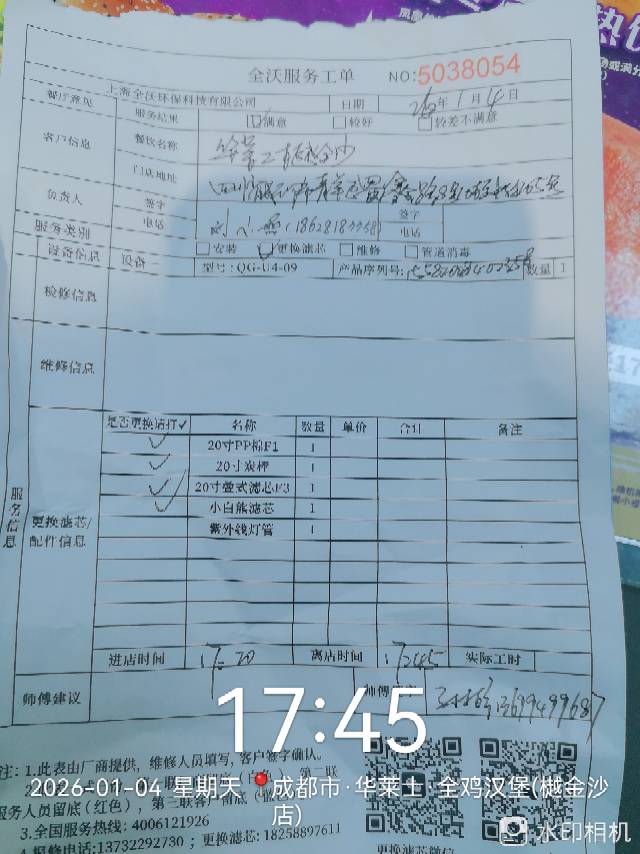 热
全沃服务工单
NO:5038054
上海全沃环保科技有限公司
日期 26年1月4日
餐厅意见 服务结果 满意 较好 较差不满意
客户信息 餐饮名称 华莱士
门店地址
负责人 签字 签字
电话 电话
服务类别 安装 更换滤芯 维修 管道消毒
设备信息 设备 型号:QG-U4-09 产品序列号: 数量 1
检修信息
维修信息
服务信息
更换滤芯/配件信息
是否更换请打✓ 名称 数量 单价 合计 备注
✓ 20寸PP棉F1 1
✓ 20寸炭棒 1
✓ 20寸叠式滤芯F3 1
✓ 小白熊滤芯 1
紫外线灯管 1
进店时间 17-20 离店时间 17:45 实际工时
师傅建议 13699499687
17:45
注: 1.此表由厂商提供, 维修人员填写, 客户签字确认。
2026-01-04 星期天 成都市·华莱士·全鸡汉堡(樾金沙店)
服务人员留底(红色), 第三联客户留底
3.全国服务热线: 4006121926
4.报修电话:13732292730 ; 更换滤芯: 18258897611
水印相机